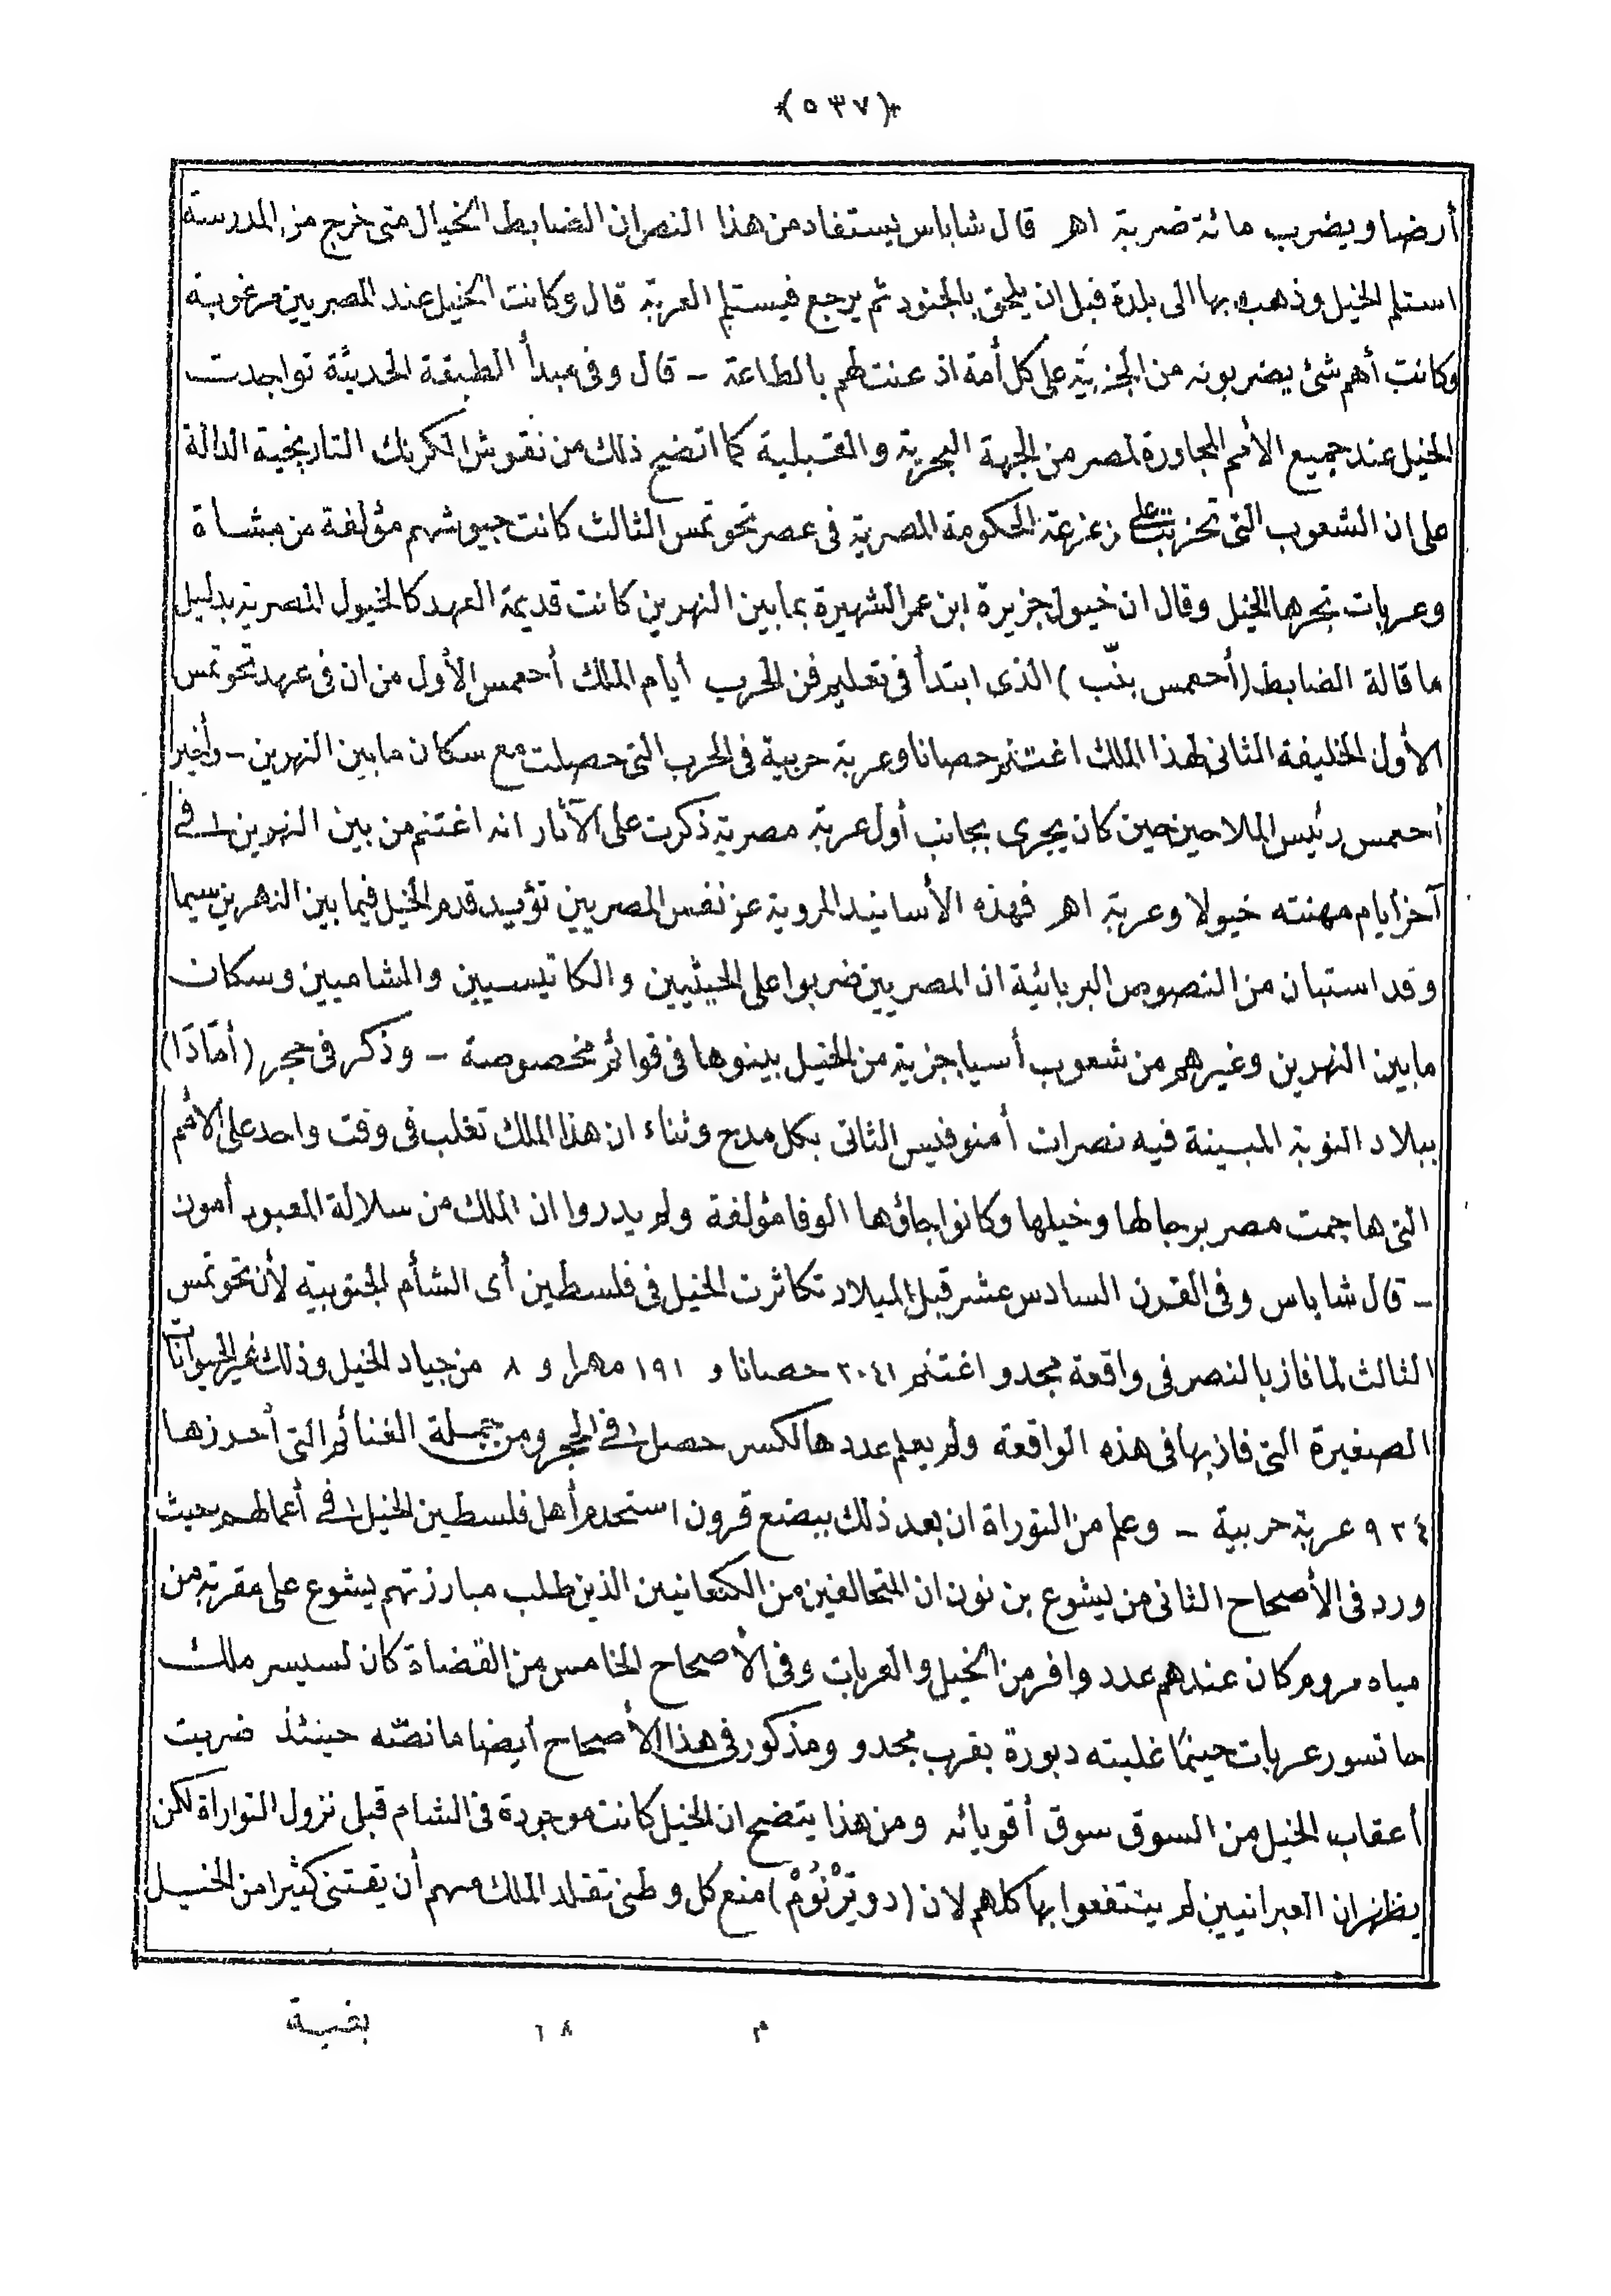 ﴿٥٣٧﴾
أرضا ويضرب مائة ضربة اهر قال شاباس يستفاد من هذا النص ان الضابط الخيال متى خرج من المدرسة
استلم الخيل وذهب بها الى بلدة قبل ان يلحق بالجنود ثم يرجع فيستلم العربة قال وكانت الخيل عند المصريين مرغوبة
وكانت أهم شئ يضربونه من الجزية على كل أمة اذ عنت لهم بالطاعة – قال وفى مبدأ الطبقة الحديثة تواجدت
الخيل عند جميع الأمم المجاورة لمصر من الجهة البحرية والقبلية كما اتضح ذلك من نقوش الكرنك التاريخية الدالة
على ان الشعوب التى تحزبت على زعزعة الحكومة المصرية فى عصر تحوتمس الثالث كانت جيوشهم مؤلفة من مشاة
وعربات تجرها الخيل وقال ان خيول جزيرة ابن عمر الشهيرة بما بين النهرين كانت قديمة العهد كالخيول المصرية بدليل
ما قالة الضابط (أحعمس بنّب) الذى ابتدأ فى تعليم فن الحرب أيام الملك أحعمس الأول من ان فى عهد تحوتمس
الأول الخليفة الثانى لهذا الملك اغتنم حصانا وعربة حربية فى الحرب التى حصلت مع سكان ما بين النهرين – وأخبر
أحعمس رئيس الملاحين حين كان يجرى بجانب أول عربة مصرية ذكرت على الآثار انه اغتنم من بين النهرين فى
آخر أيام مهنته خيولا وعربة اهر فهذه الأسانيد المروية عن نفس المصريين تؤيد قدم الخيل فيما بين النهرين سيما
وقد استبان من النصوص البربائية ان المصريين ضربوا على الحيثيين والكاتيسيين والشاميين وسكان
ما بين النهرين وغيرهم من شعوب أسيا جزية من الخيل بينوها فى قوائم مخصوصة – وذكر فى حجر (أمَادَا)
ببلاد النوبة المبينة فيه نصرات أمنوفيس الثانى بكل مدح وثناء ان هذا الملك تغلب فى وقت واحد على الأمم
التى هاجمت مصر برجالها وخيلها وكانوا جاؤها الوفا مؤلفة ولم يدروا ان الملك من سلالة المعبود أمون
– قال شاباس وفى القرن السادس عشر قبل الميلاد تكاثرت الخيل فى فلسطين أى الشأم الجنوبية لأن تحوتمس
الثالث لما فاز بالنصر فى واقعة مجدو اغتنم ٢٠٤١ حصانا و ١٩١ مهرا و ٨ من جياد الخيل وذلك غير الحيوانات
الصغيرة التى فاز بها فى هذه الواقعة ولم يعلم عددها لكسر حصل فى الحجر ومن جملة الغنائم التى أحرزها
٩٢٤ عربة حربية – وعلم من التوراة ان بعد ذلك ببضع قرون استخدم أهل فلسطين الخيل فى أعمالهم بحيث
ورد فى الأصحاح الثانى من يشوع بن نون ان المتحالفين من الكنعانيين الذين طلب مبارزتهم يشوع على مقربة من
مياه مروم كان عندهم عدد وافر من الخيل والعربات وفى الأصحاح الخامس من القضاة كان لسيسر ملك
حاتسور عربات حينما غلبته دبورة بقرب مجدو ومذكور فى هذا الأصحاح أيضا ما نصّه حينئذ ضربت
أعقاب الخيل من السوق سوق أقويائه ومن هذا يتضح ان الخيل كانت موجودة فى الشام قبل نزول التواراة لكن
يظهر ان العبرانيين لم ينتفعوا بها كلهم لان (دويَرْنُومْ) منع كل وطنى تقلد الملك منهم أن يقتنى كثيرا من الخيل
م ٦٨ بغية